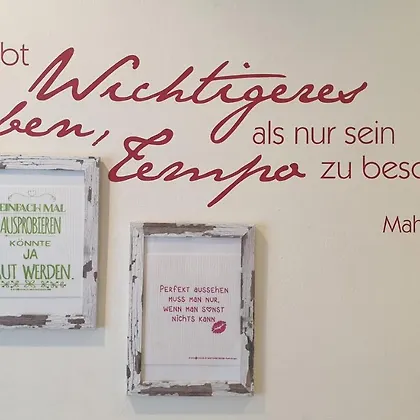 bt Wichtigeres
ben, Tempo als nur sein
zu besc
Mah
EINFACH MAL
AUSPROBIEREN
KÖNNTE
JA
UT WERDEN.
PERFEKT AUSSEHEN
MUSS MAN NUR,
WENN MAN SONST
NICHTS KANN